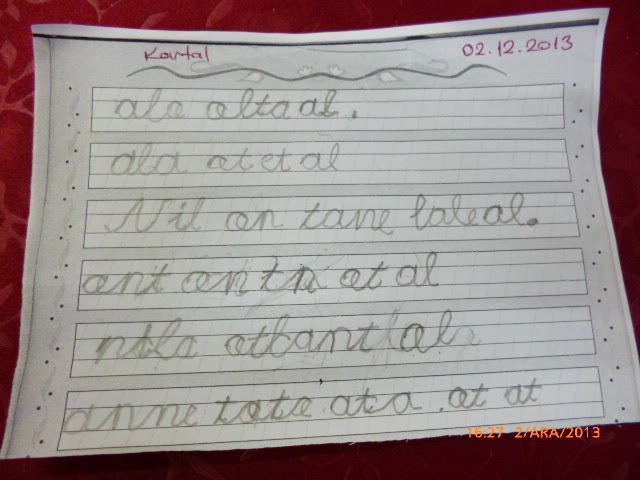 Kartal
02.12.2013
ala olta al.
ala et et al
Nil on tane lale al.
ant on tn at al
atbant al
anne tote ata. at at
16:27 2/ARA/2013